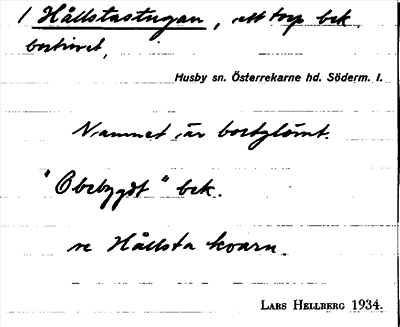 1 Hållstastugan, ett torp bek.
bortrivet,
Husby sn. Österrekarne hd. Söderm. l.
Namnet är bortglömt.
"Obebygdt" bek.
se Hållsta kvarn.
LARS HELLBERG 1934.